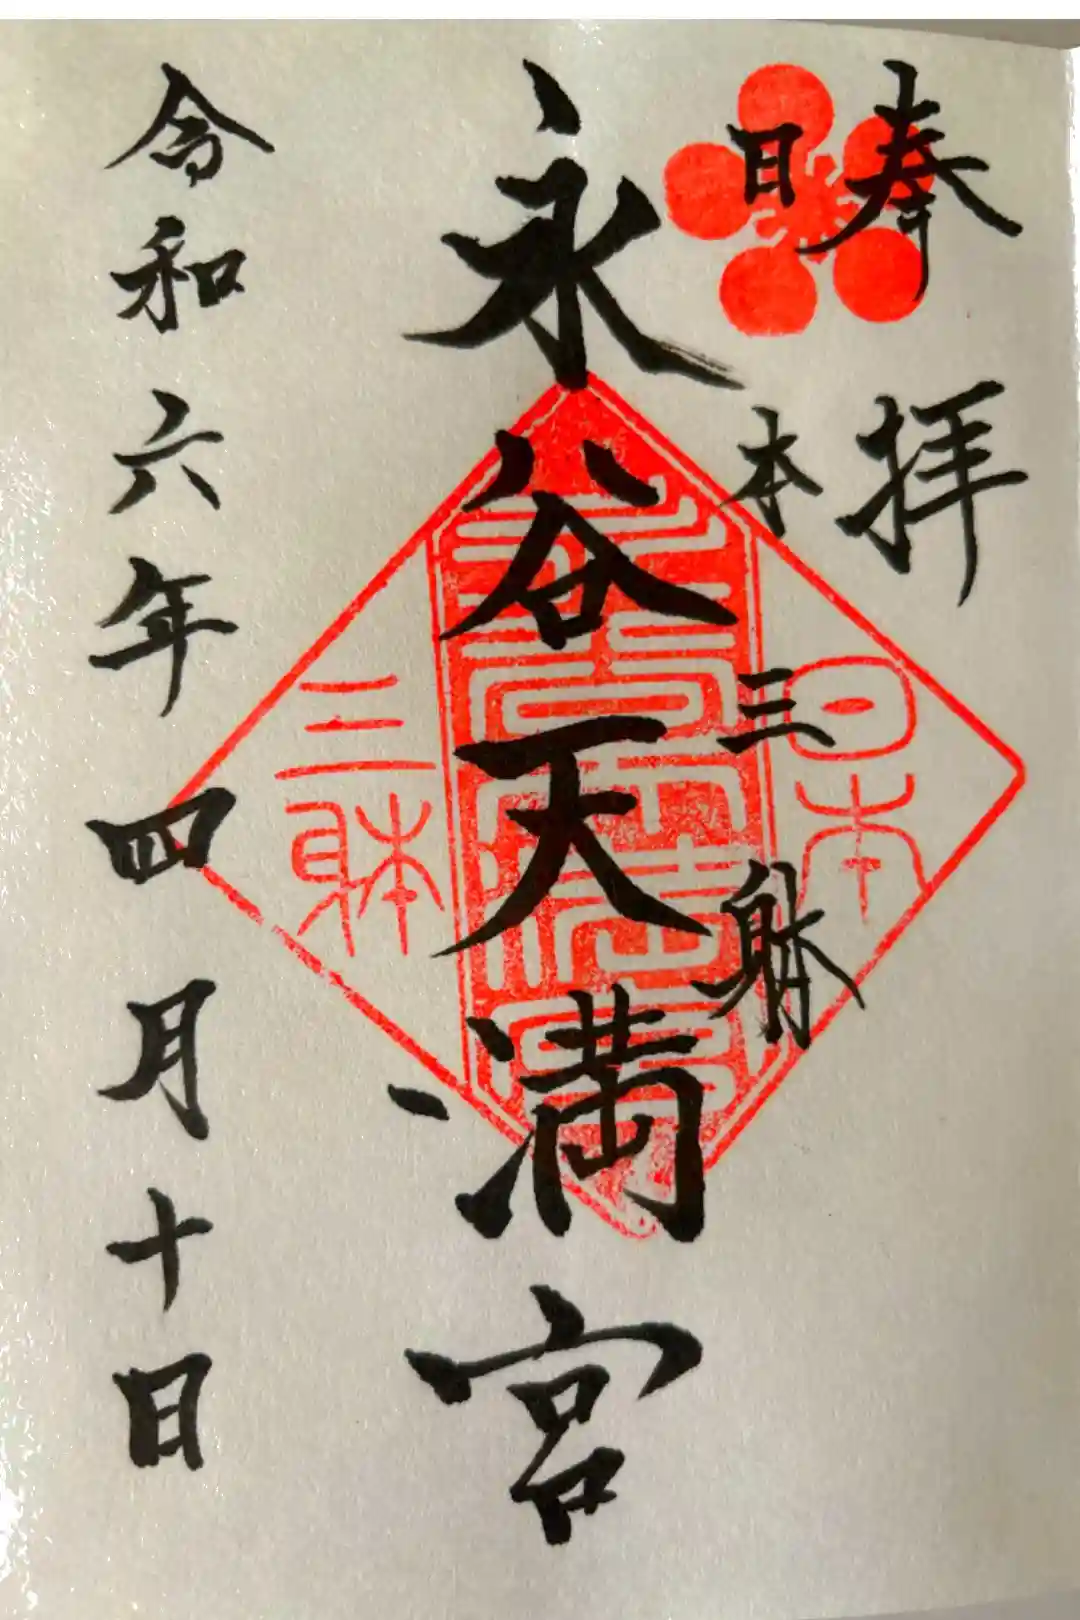 奉拝
日本三躰
永谷天満宮
令和六年四月十日
日本
三躰